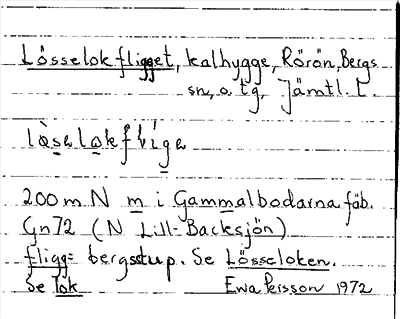 Lösselokfligget, kalhygge, Rörön, Bergs
sn, o. tg, Jämtl. l.
lòselokflíge
200 m N m i Gammalbodarna fäb.
Gn72 (N Lill-Backsjön)
fligg= bergsstup. Se Lösseloken.
Se lok Ewa Persson 1972